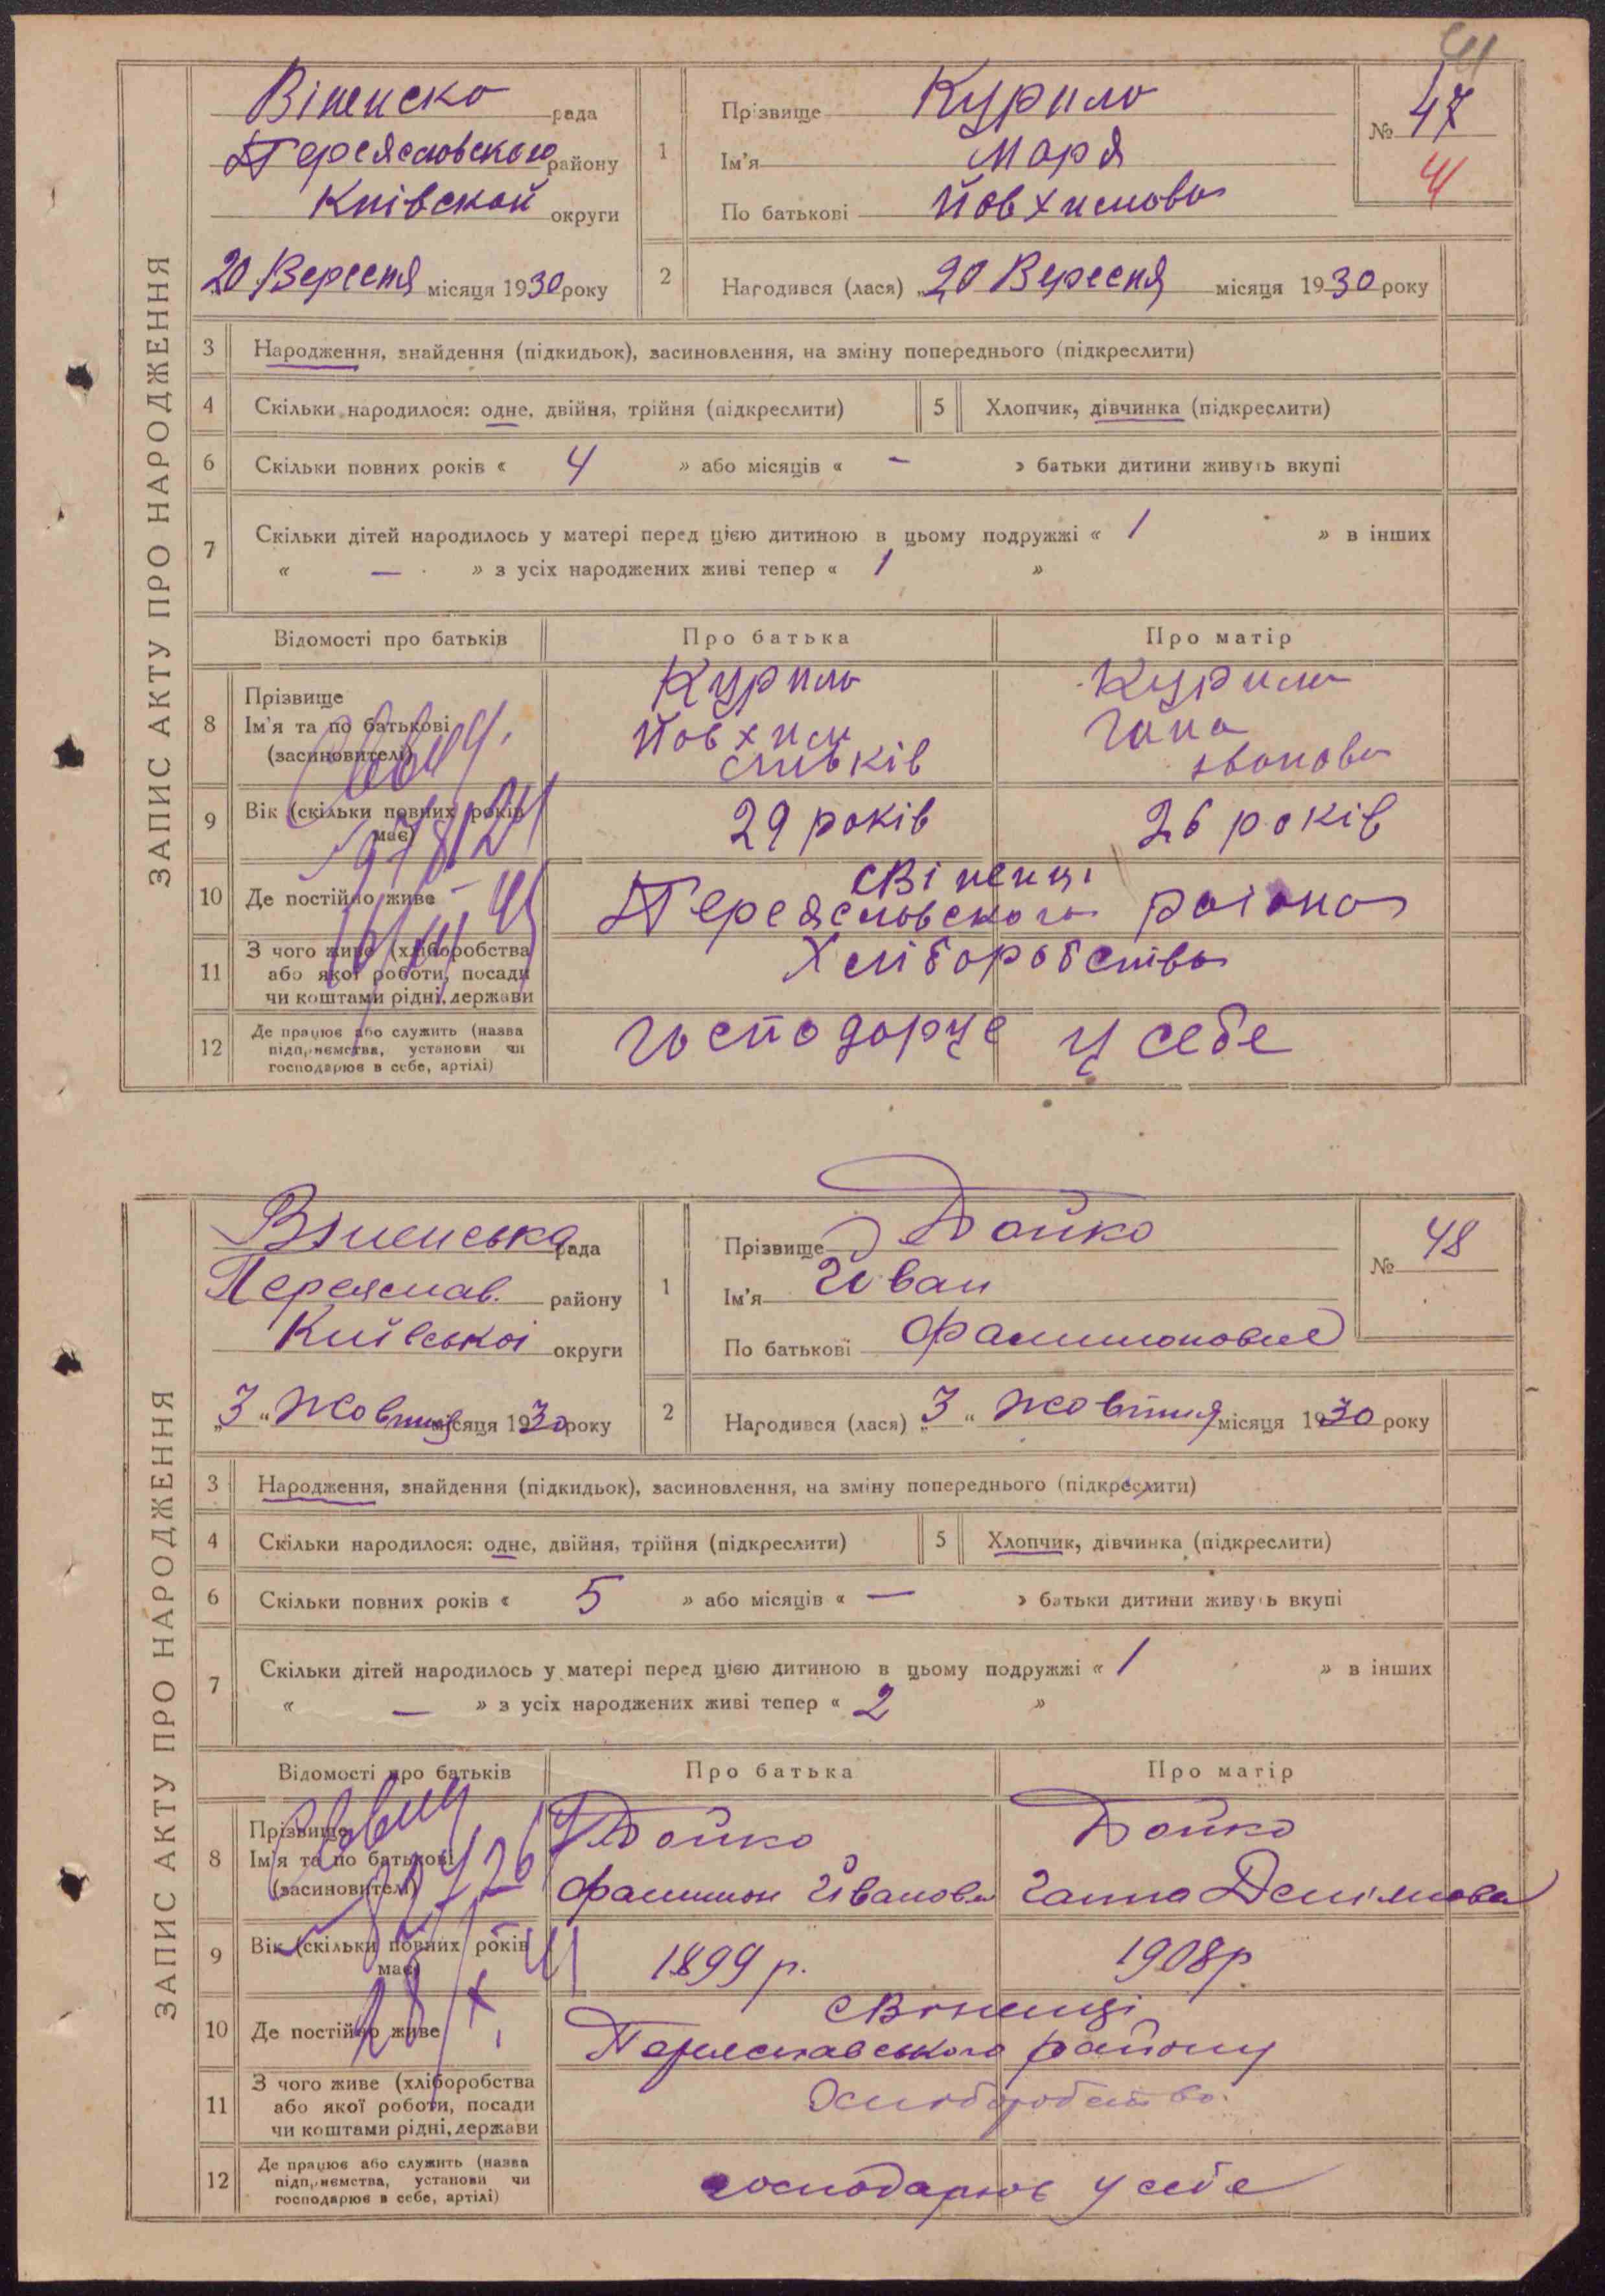 41
ЗАПИС АКТУ ПРО НАРОДЖЕННЯ
Віненско рада
Переясловского району
Київской округи
20 Вересня місяця 1930 року
1
Прізвище Курило
Ім'я Маря
По батькові Йовхимова
№ 47
41
2 Народився (лася) „20 Вересня місяця 1930 року
3 Народження, знайдення (підкидьок), засиновлення, на зміну попереднього (підкреслити)
4 Скільки народилося: одне, двійня, трійня (підкреслити) 5 Хлопчик, дівчинка (підкреслити)
6 Скільки повних років « 4 » або місяців « — » батьки дитини живуть вкупі
7 Скільки дітей народилось у матері перед цією дитиною в цьому подружжі « 1 » в інших
« — » з усіх народжених живі тепер « 1 »
Відомості про батьків Про батька Про матір
8 Прізвище
Ім'я та по батькові
(засиновителі)
Курило
Йовхим
Курило
Гана
Іванова
9 Вік (скільки повних років
має)
29 років 26 років
10 Де постійно живе
с Віненці
Переясловского раіона
11 З чого живе (хліборобства
або якої роботи, посади
чи коштами рідні, держави
Хліборобства
12 Де працює або служить (назва
підприємства, установи чи
господарює в себе, артілі)
господарує у себе
ЗАПИС АКТУ ПРО НАРОДЖЕННЯ
Віненська рада
Переяслав. району
Київської округи
„3“ Жовтня місяця 1930 року
1
Прізвище Дойко
Ім'я Іван
По батькові Фалимонович
№ 48
2 Народився (лася) „3“ Жовтня місяця 1930 року
3 Народження, знайдення (підкидьок), засиновлення, на зміну попереднього (підкреслити)
4 Скільки народилося: одне, двійня, трійня (підкреслити) 5 Хлопчик, дівчинка (підкреслити)
6 Скільки повних років « 5 » або місяців « — » батьки дитини живуть вкупі
7 Скільки дітей народилось у матері перед цією дитиною в цьому подружжі « 1 » в інших
« — » з усіх народжених живі тепер « 2 »
Відомості про батьків Про батька Про матір
8 Прізвище
Ім'я та по батькові
(засиновителі)
Дойко Дойко
Фалимон Іванови Ганна
9 Вік (скільки повних років
має)
1899 р. 1908 р
10 Де постійно живе
с Віненці
Переяславського району
11 З чого живе (хліборобства
або якої роботи, посади
чи коштами рідні, держави
Хліборобство.
12 Де працює або служить (назва
підприємства, установи чи
господарює в себе, артілі)
господарює у себе